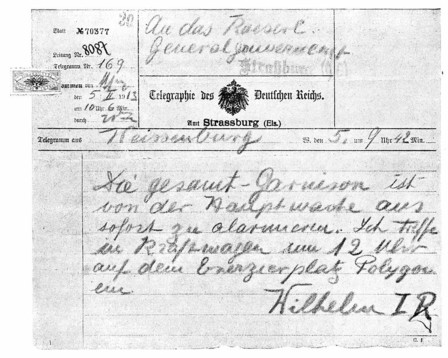 Blatt № 70377
Leitung Nr. 8087
Telegramm Nr. 169
den 5. II 1913
um 10 Uhr 6
durch
An das Kaiserl.
Generalgouvernement
Strassburg (Els)
Telegraphie des Deutschen Reichs.
Amt Strassburg (Els.)
Telegramm aus Weissenburg W. den 5. um 9 Uhr 42 Min.
Die gesamt-Garnison ist
von der Hauptwache aus
sofort zu alarmieren. Ich treffe
in Kraftwagen um 12 Uhr
auf dem Exerzierplatz Polygon
ein.
Wilhelm I R
1.
C. f.